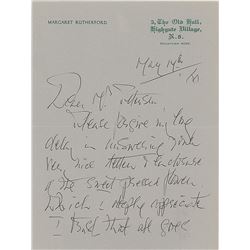 MARGARET RUTHERFORD
5, The Old Hall,
Highgate Village,
N.6.
May 19th
Dear Mr
Please forgive my long
delay in answering your
very nice letter & enclosure
of the sweet pressed flower
which I deeply appreciate
I trust that all goes